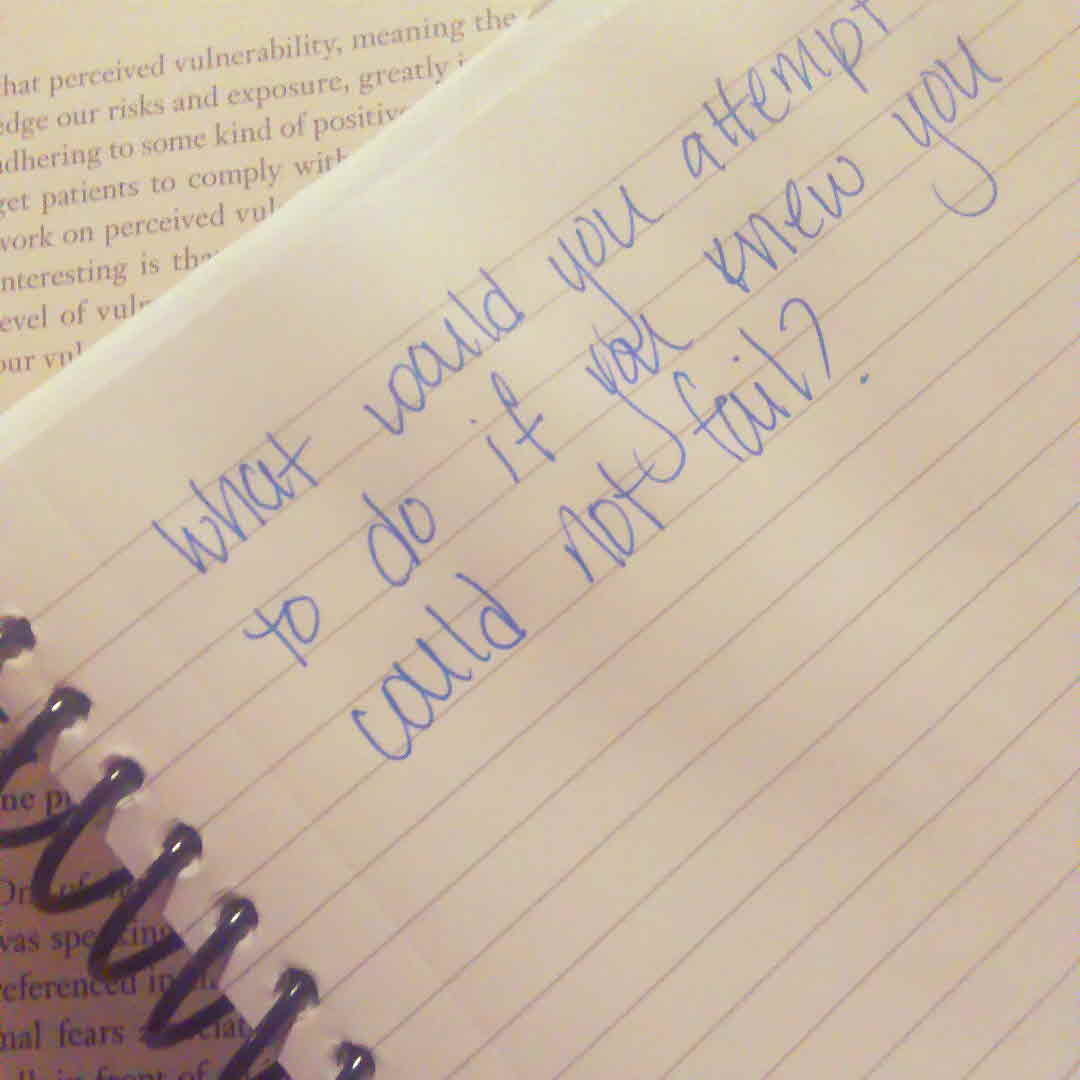 that perceived vulnerability, meaning the
edge our risks and exposure, greatly
adhering to some kind of positive
get patients to comply with
work on perceived
interesting is
level of
our
What would you attempt
to do if you knew you
could not fail?
was speaking
referenced in
nal fears
in front of